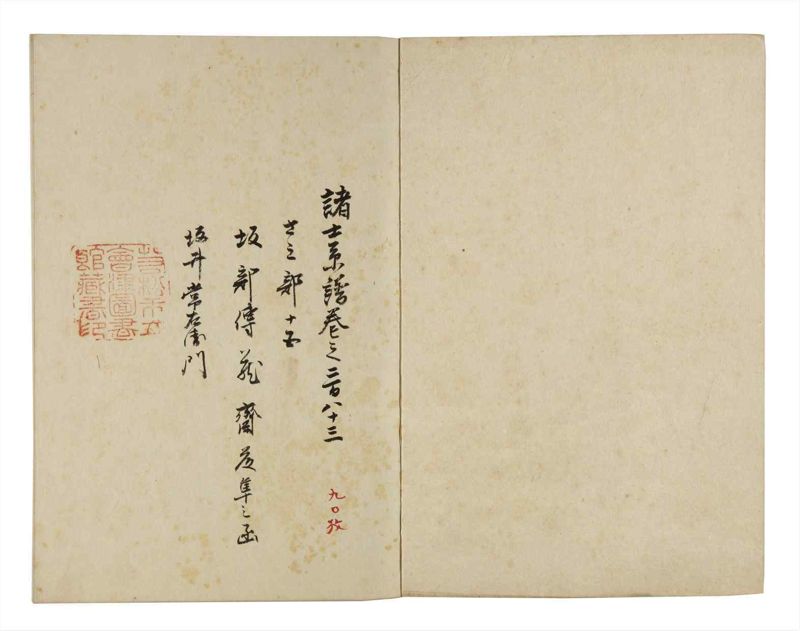 諸士系譜巻之二百八十三
さ之部十五
坂部傳蔵 齋藤隼之函
坂井常右衛門
九〇枚
金沢市立
會圖書
館藏書印